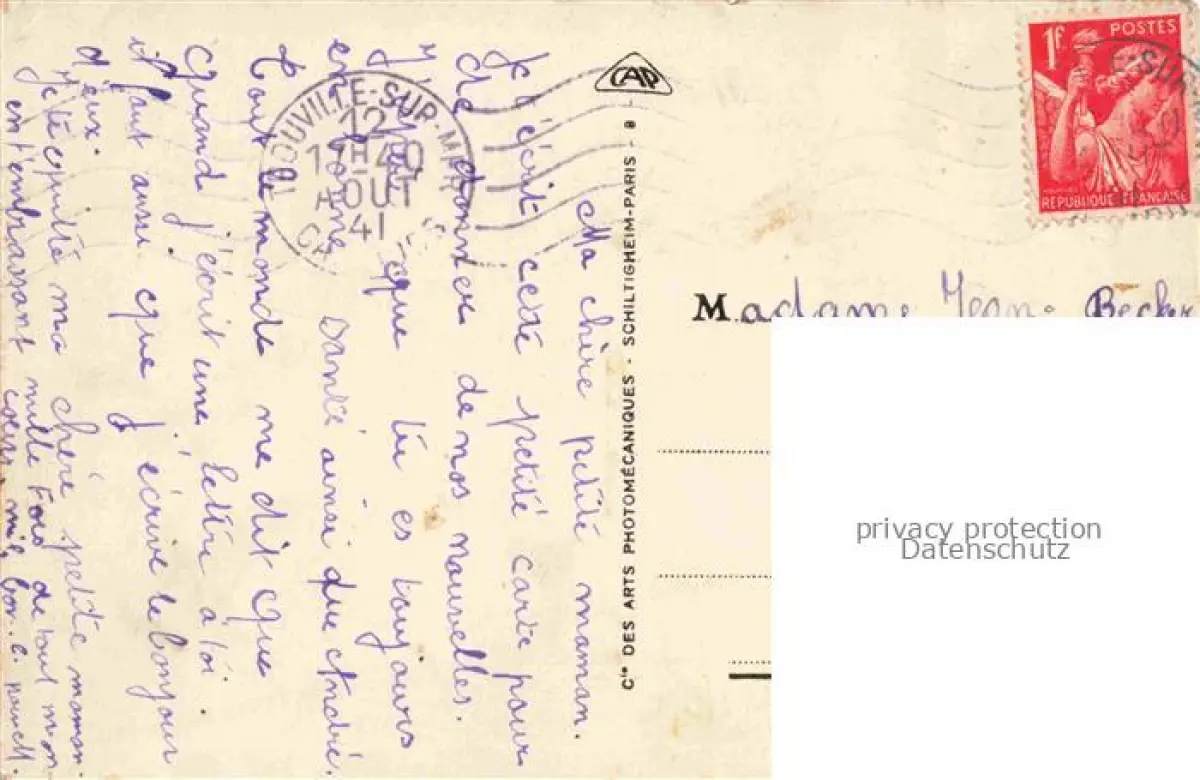 Ma chère petite maman.
Je t'écrit cette petite carte pour
de donner de nos nouvelles.
J'éspér que tu es toujours
en bonne santé ainsi que André.
Tout le monde me dit que
Quand j'écrit une lettre à toi
il faut aussi que j'écrive le bonjour
d'eux.
Je te quitte ma chère petite maman
en t'embrassant mille Fois de tout mon
CAP
Cie DES ARTS PHOTOMÉCANIQUES - SCHILTIGHEIM-PARIS - 8
OUVILLE-SUR-M
12H
17
OUT
41
1F POSTES
RÉPUBLIQUE FRANÇAISE
-SUR
Madame Jean Becker
privacy protection
Datenschutz